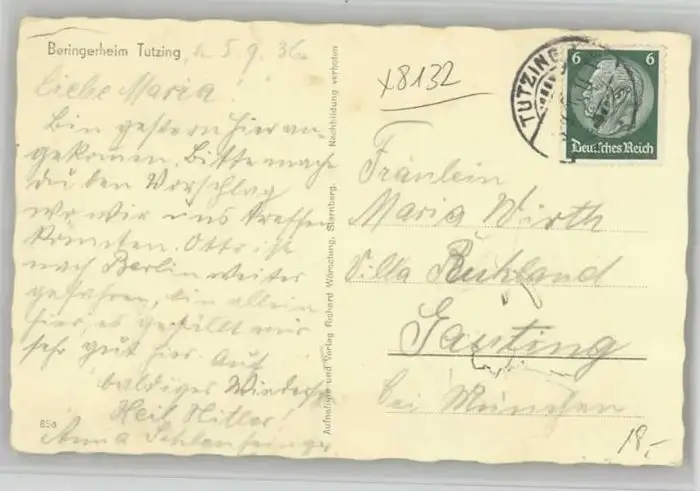 Beringerheim Tutzing, d. 5.9.36.
Liebe Maria!
Bin gestern hier an-
gekommen. Bitte mache
du den Vorschlag
wo wir uns treffen
könnten. Otto ist
nach Berlin weiter
gefahren, bin allein
hier, es gefällt mir
sehr gut hier. Auf
baldiges Wiederseh
Heil Hitler!
Anna
85a
Nachbildung verboten
Aufnahme und Verlag Richard Wörsching, Starnberg.
x8132
TUTZING
6 6
Deutsches Reich
Fräulein
Maria Wirth
Villa Ruhland
Gauting
bei München
18,-